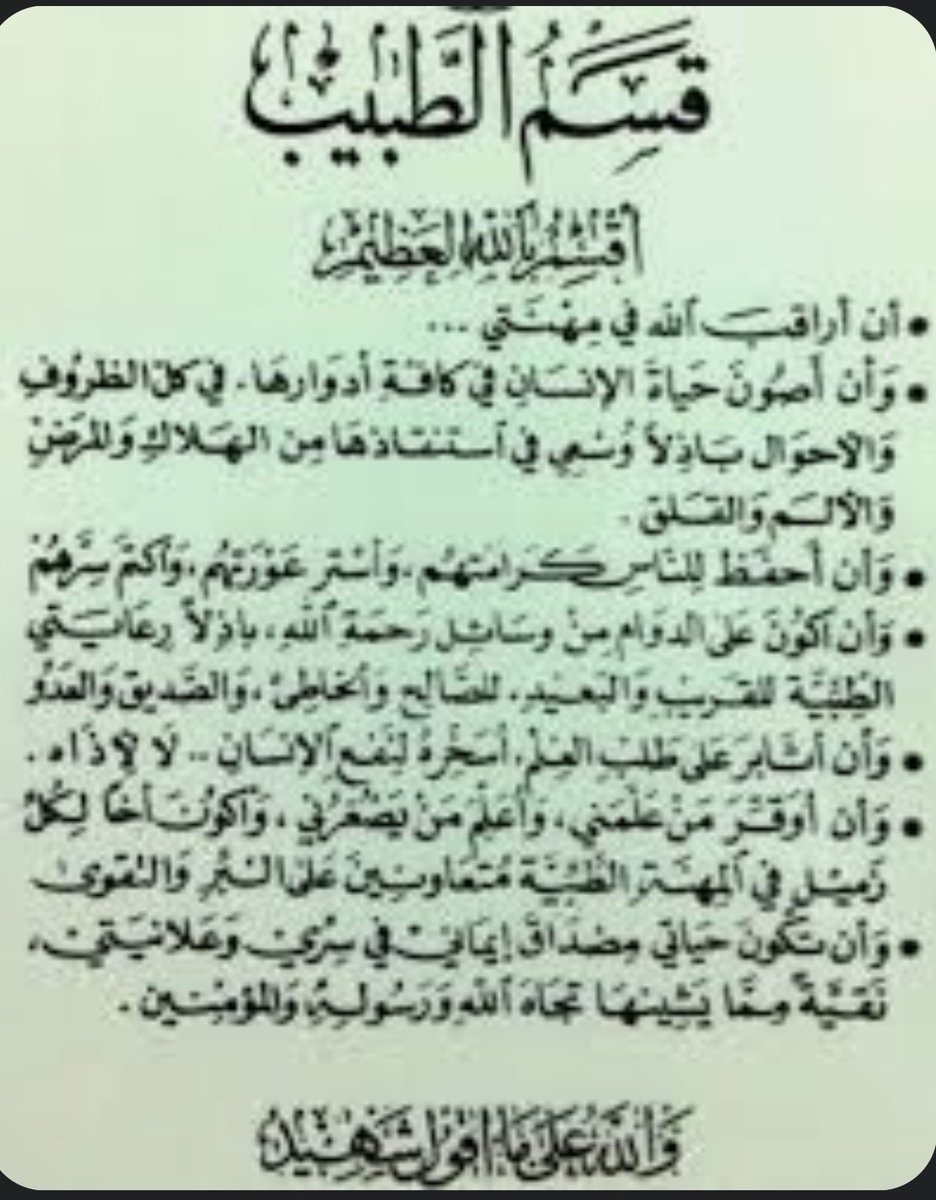 قسم الطبيب
أقسم بالله العظيم
• أن أراقب الله في مهنتي ...
• وأن أصون حياة الإنسان في كافة أدوارها. في كل الظروف
والاحوال باذلاً وسعي في استنقاذها من الهلاك والمرض
والألم والقلق .
• وأن أحفظ للناس كرامتهم ، وأستر عورتهم ، وأكتم سرهم
• وأن أكون على الدوام من وسائل رحمة الله ، باذلاً رعايتي
الطبية للقريب والبعيد . للصالح والخاطئ ، والصديق والعدو
• وأن أثابر على طلب العلم . أسخره لنفع الإنسان .. لا لإذاه .
• وأن أوقر من علمني ، وأعلم من يصغرني ، وأكون أخا لكل
زميل في المهنة الطبية متعاونين على البر والتقوى
• وأن تكون حياتي مصداق إيماني في سري وعلانيتي ،
نقية مما يشينها تجاه الله ورسوله والمؤمنين .
والله على ما اقول شهيد